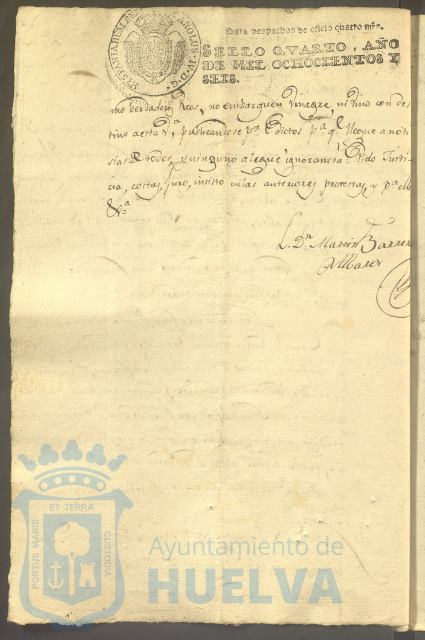 HISPANIARUM REX CAROLUS IV D.G.
Para despachos de oficio quatro mrs.
SELLO QVARTO, AÑO
DE MIL OCHOCIENTOS Y
SEIS.
mo verdadero, Reos, no embarguen Vinagre, ni Vino con des
tino a esta Va, publicandose pr Edictos pa qe llegue a noti
sias de todos, y ninguno alegue ignorancia: Pido Justi
cia, costas, juro, insisto en las anteriores protestas, y pa ello
&a
L. Dn. Marin Barre
Albares
ET TERRÆ
PORTUS MARIS
CUSTODIA
Ayuntamiento de
HUELVA